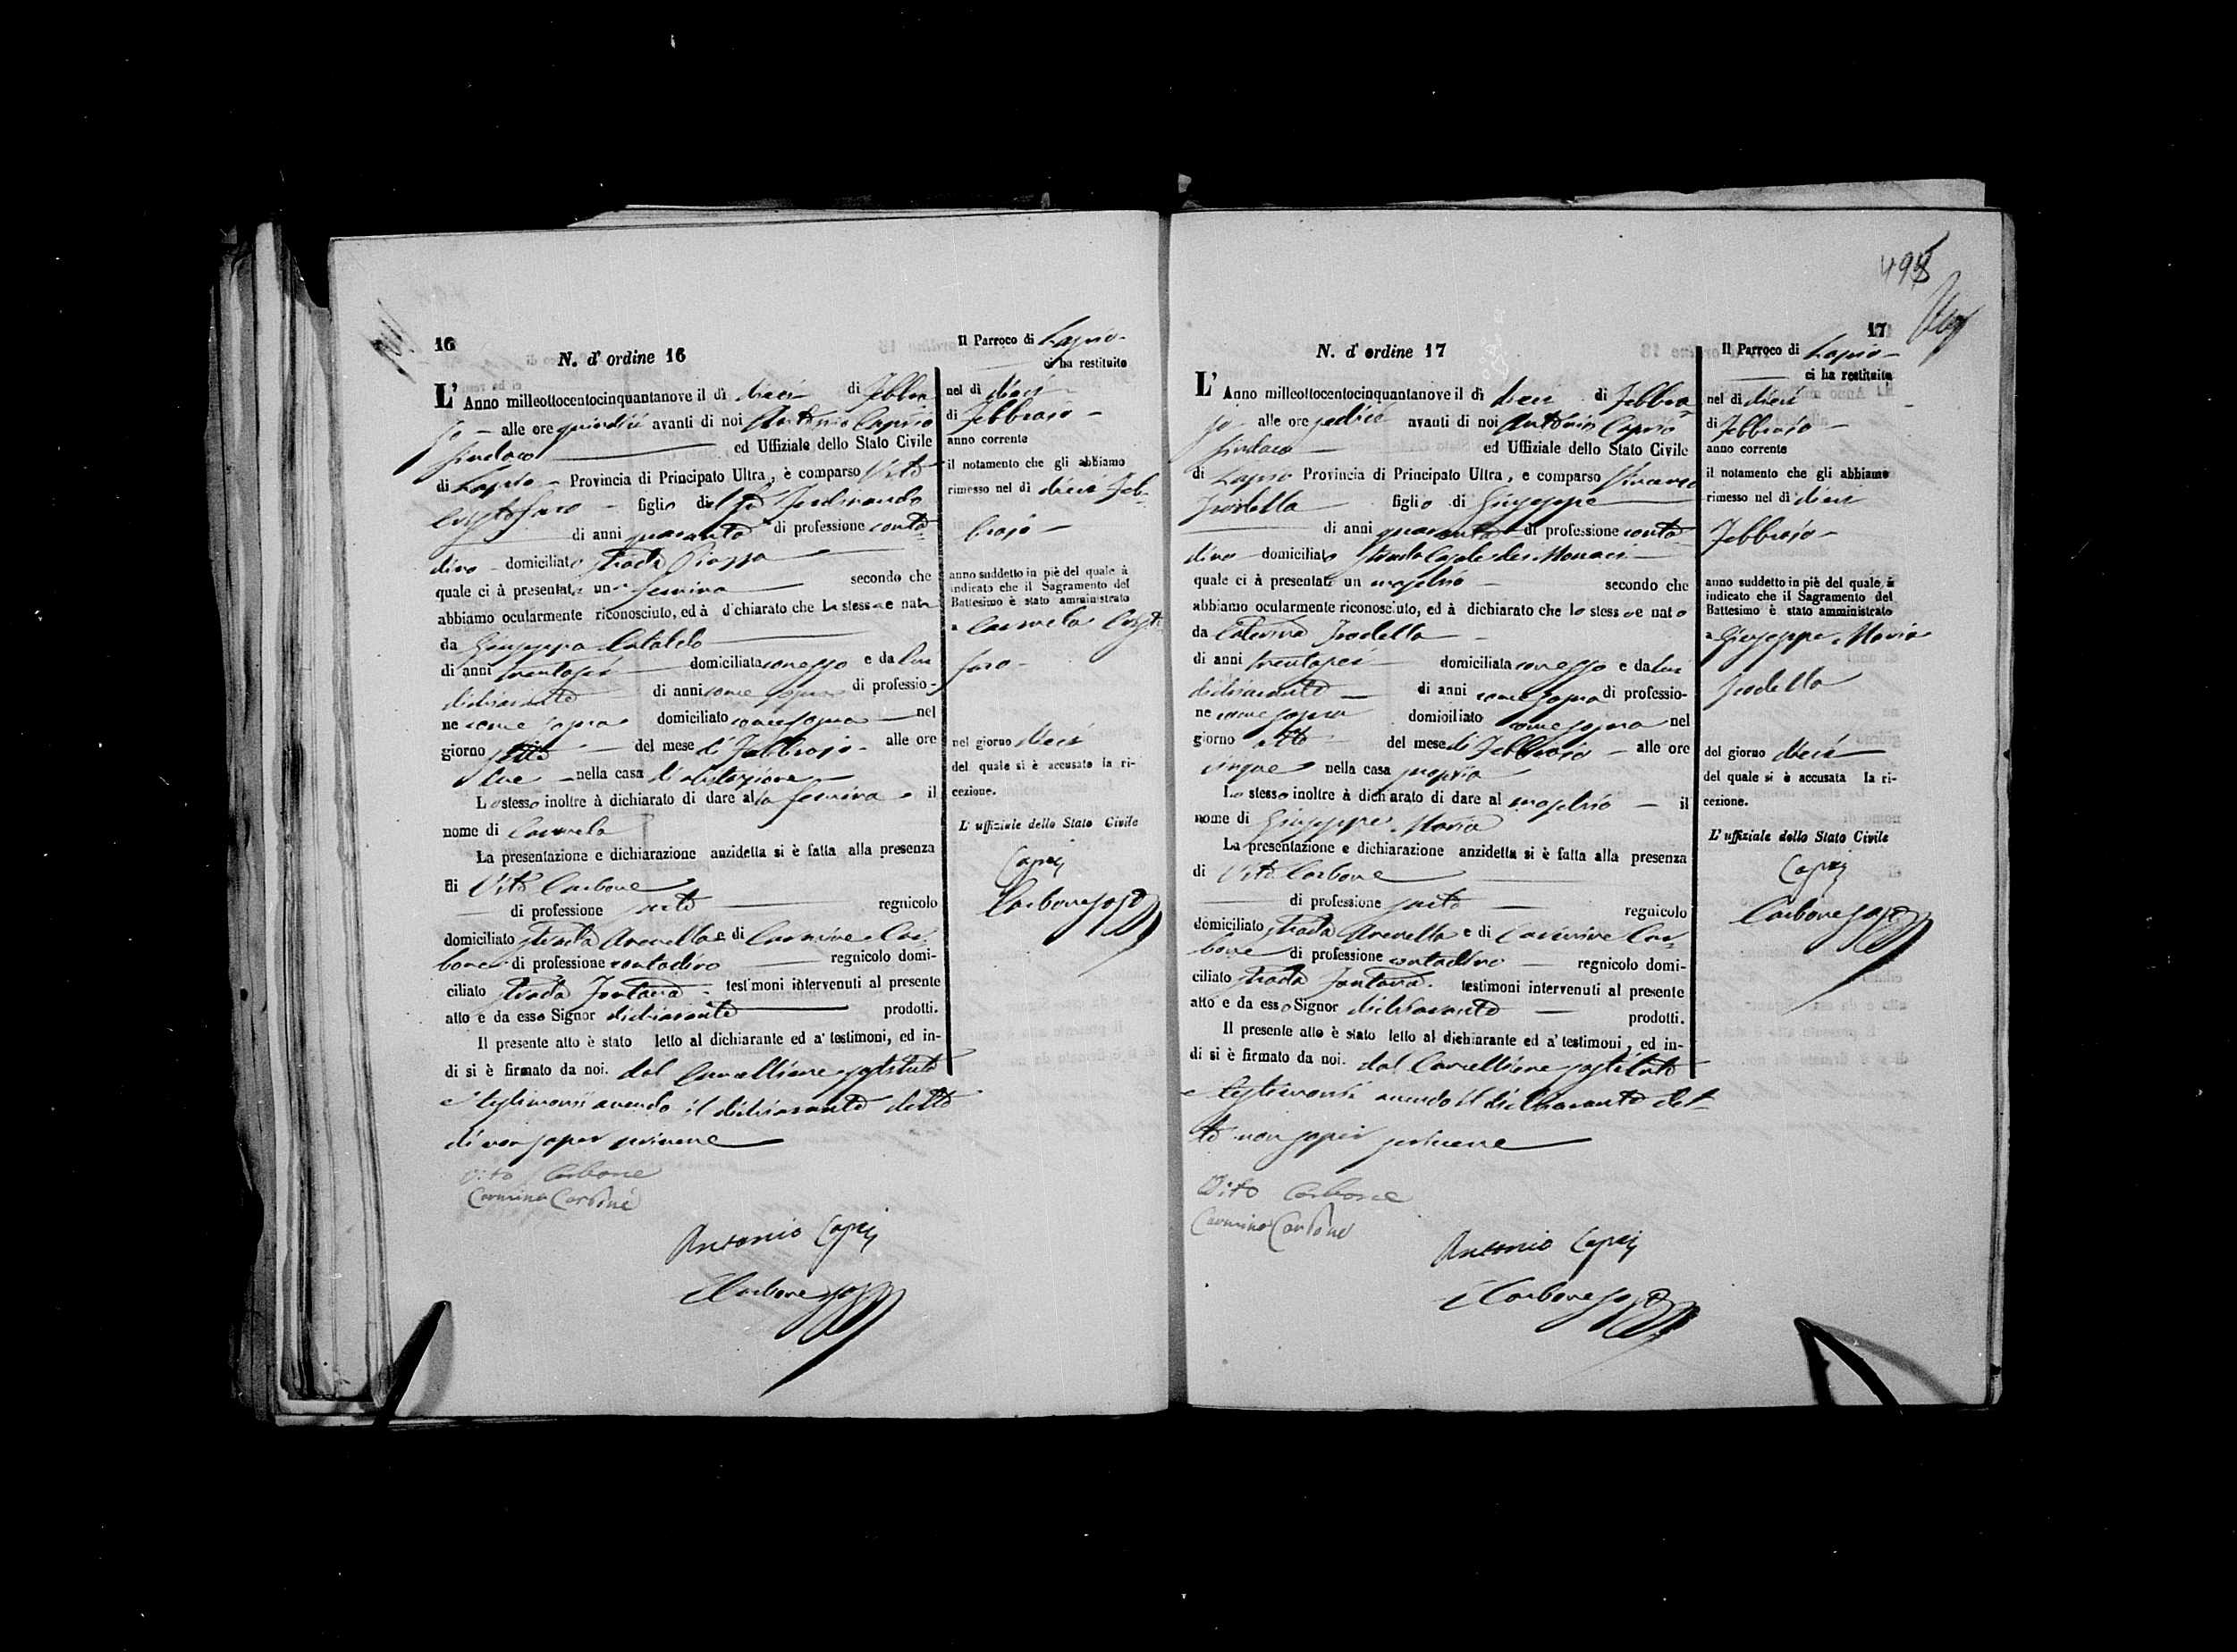 16
N. d' ordine 16
L' Anno milleottocentocinquantanove il dì dieci di Febbra
jo alle ore quindici avanti di noi Antonio Caprio
Sindaco ed Uffiziale dello Stato Civile
di Lapio Provincia di Principato Ultra, è comparso Vito
figlio del fu Ferdinando
di anni quaranta di professione conta
dino domiciliato strada Piazza
quale ci à presentata una femina secondo che
abbiamo ocularmente riconosciuto, ed à dichiarato che la stessa e nata
da Giuseppa Cataldo
di anni trentasei domiciliata con esso e da lui
dichiarante di anni come sopra di professio-
ne come sopra domiciliato come sopra nel
giorno sette del mese di Febbrajo alle ore
due nella casa di abitazione
Lo stesso inoltre à dichiarato di dare alla femina il
nome di Carmela
La presentazione e dichiarazione anzidetta si è fatta alla presenza
di Vito Carbone
di professione sarto regnicolo
domiciliato strada Arenella e di Carmine Car
bone di professione contadino regnicolo domi-
ciliato strada Fontana testimoni intervenuti al presente
atto e da esso Signor dichiarante prodotti.
Il presente atto è stato letto al dichiarante ed a' testimoni, ed in-
di si è firmato da noi. dal Cancelliere sostituto
e testimonii avendo il dichiarante detto
di non saper scrivere
Vito Carbone
Carmino Carbone
Antonio Caprio
Carbone
Il Parroco di Lapio
ci ha restituito
nel dì dieci
di Febbrajo
anno corrente
il notamento che gli abbiamo
rimesso nel dì dieci Feb-
brajo
anno suddetto in piè del quale à
indicato che il Sagramento del
Battesimo è stato amministrato
a Carmela
faro
nel giorno dieci
del quale si è accusato la ri-
cezione.
L' uffiziale dello Stato Civile
Caprio
Carbone
498
17
N. d' ordine 17
L' Anno milleottocentocinquantanove il dì dieci di Febbra
jo alle ore sedici avanti di noi Antonio Caprio
Sindaco ed Uffiziale dello Stato Civile
di Lapio Provincia di Principato Ultra, e comparso Vincenzo
figlio di Giuseppe
di anni quaranta di professione conta
dino domiciliato strada Casale dei Monaci
quale ci à presentato un maschio secondo che
abbiamo ocularmente riconosciuto, ed à dichiarato che lo stesso e nato
da Caterina
di anni trentasei domiciliata con esso e da lui
dichiarante di anni come sopra di professio-
ne come sopra domiciliato come sopra nel
giorno otto del mese di Febbrajo alle ore
cinque nella casa propria
Lo stesso inoltre à dichiarato di dare al maschio il
nome di Giuseppe Maria
La presentazione e dichiarazione anzidetta si è fatta alla presenza
di Vito Carbone
di professione sarto regnicolo
domiciliato strada Arenella e di Carmine Car-
bone di professione contadino regnicolo domi-
ciliato strada Fontana. testimoni intervenuti al presente
atto e da esso Signor dichiarante prodotti.
Il presente atto è stato letto al dichiarante ed a' testimoni, ed in-
di si è firmato da noi. dal Cancelliere sostituto
e testimonii avendo il dichiarante det-
to non saper scrivere
Vito Carbone
Carmino Carbone
Antonio Caprio
Carbone
Il Parroco di Lapio
ci ha restituito
nel dì dieci
di Febbrajo
anno corrente
il notamento che gli abbiamo
rimesso nel dì dieci
Febbrajo
anno suddetto in piè del quale à
indicato che il Sagramento del
Battesimo è stato amministrato
a Giuseppe Maria
del giorno dieci
del quale si è accusata la ri-
cezione.
L' uffiziale dello Stato Civile
Caprio
Carbone